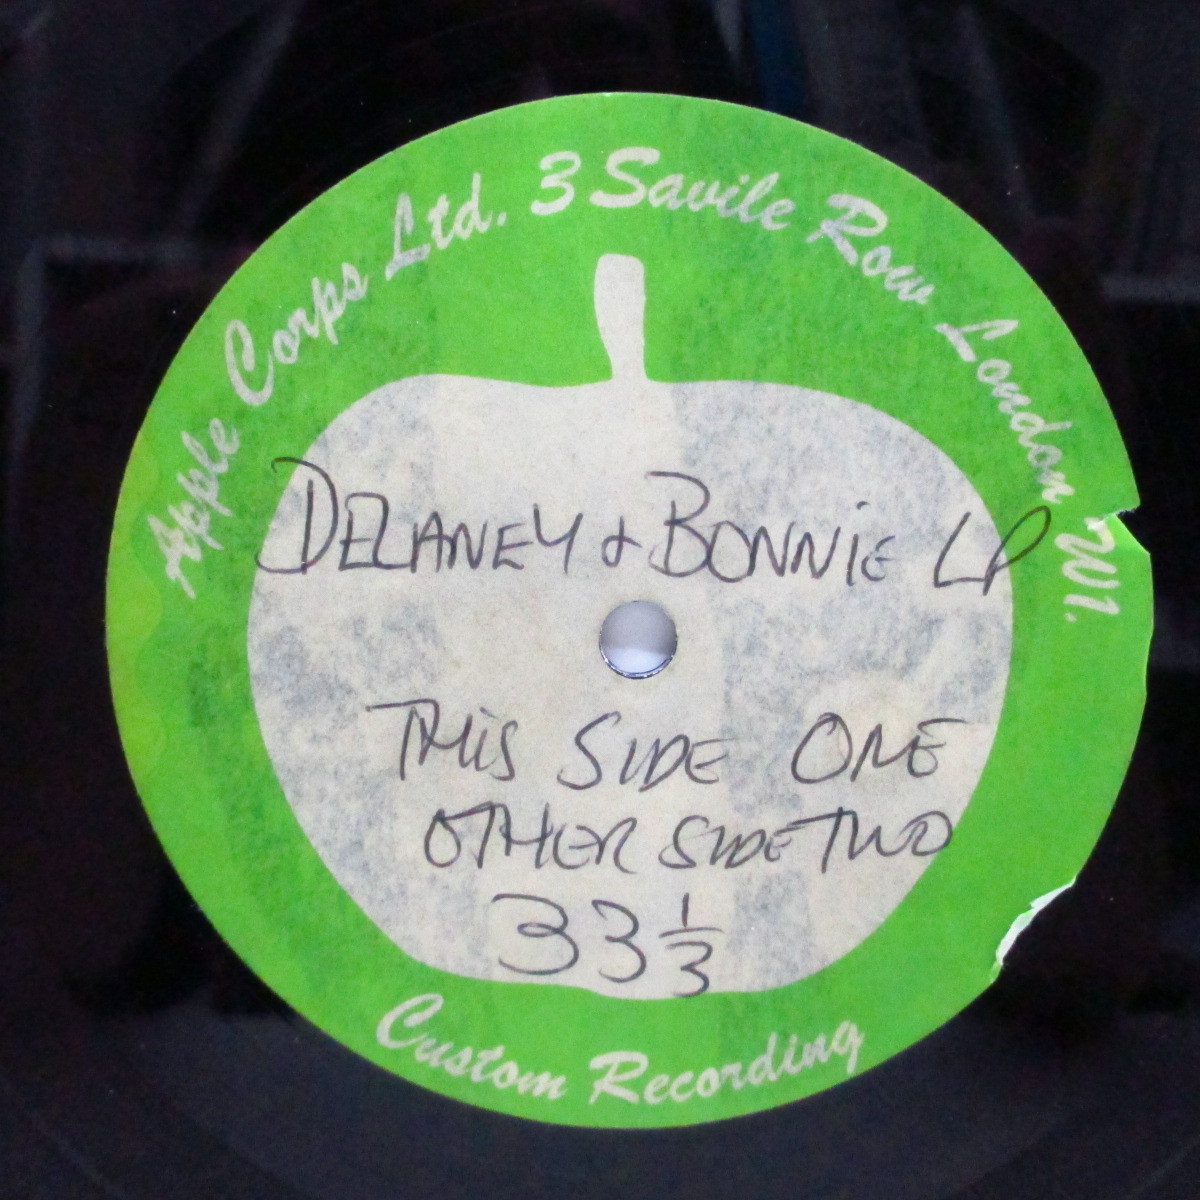 Apple Corps Ltd. 3 Savile Row London W1.
DELANEY & BONNiE LP
THiS SIDE ONE
OTHER SIDE TWO
33 1/3
Custom Recording